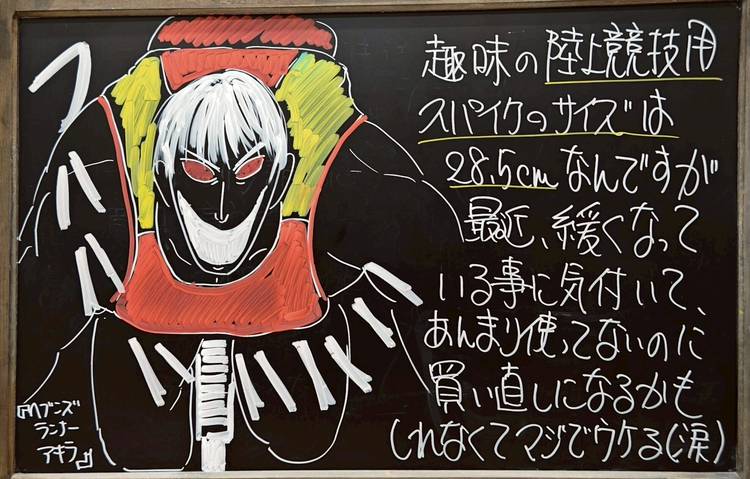 趣味の陸上競技用
スパイクのサイズは
28.5cmなんですが
最近、緩くなって
いる事に気付いて、
あんまり使ってないのに
買い直しになるかも
しれなくてマジでウケる(涙)
フハハハハハハハ
『ヘブンズ
ランナー
アキラ』